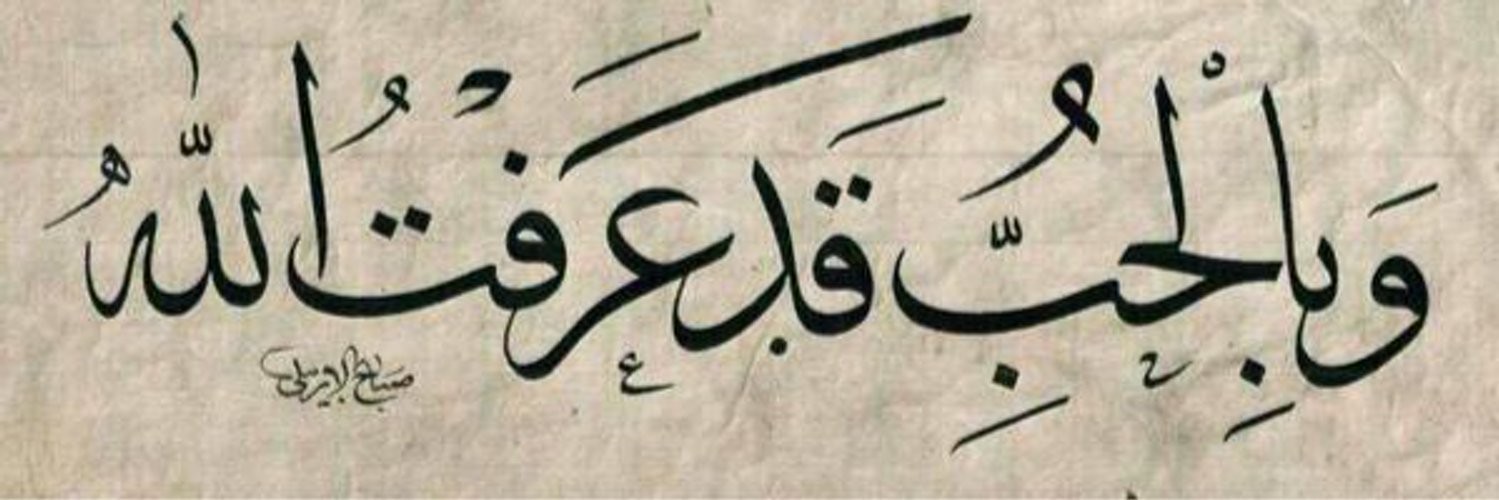 وَبِالْحُبِّ قَدْ عَرَفْتُ اللّٰهُ
صباح الاربيلي